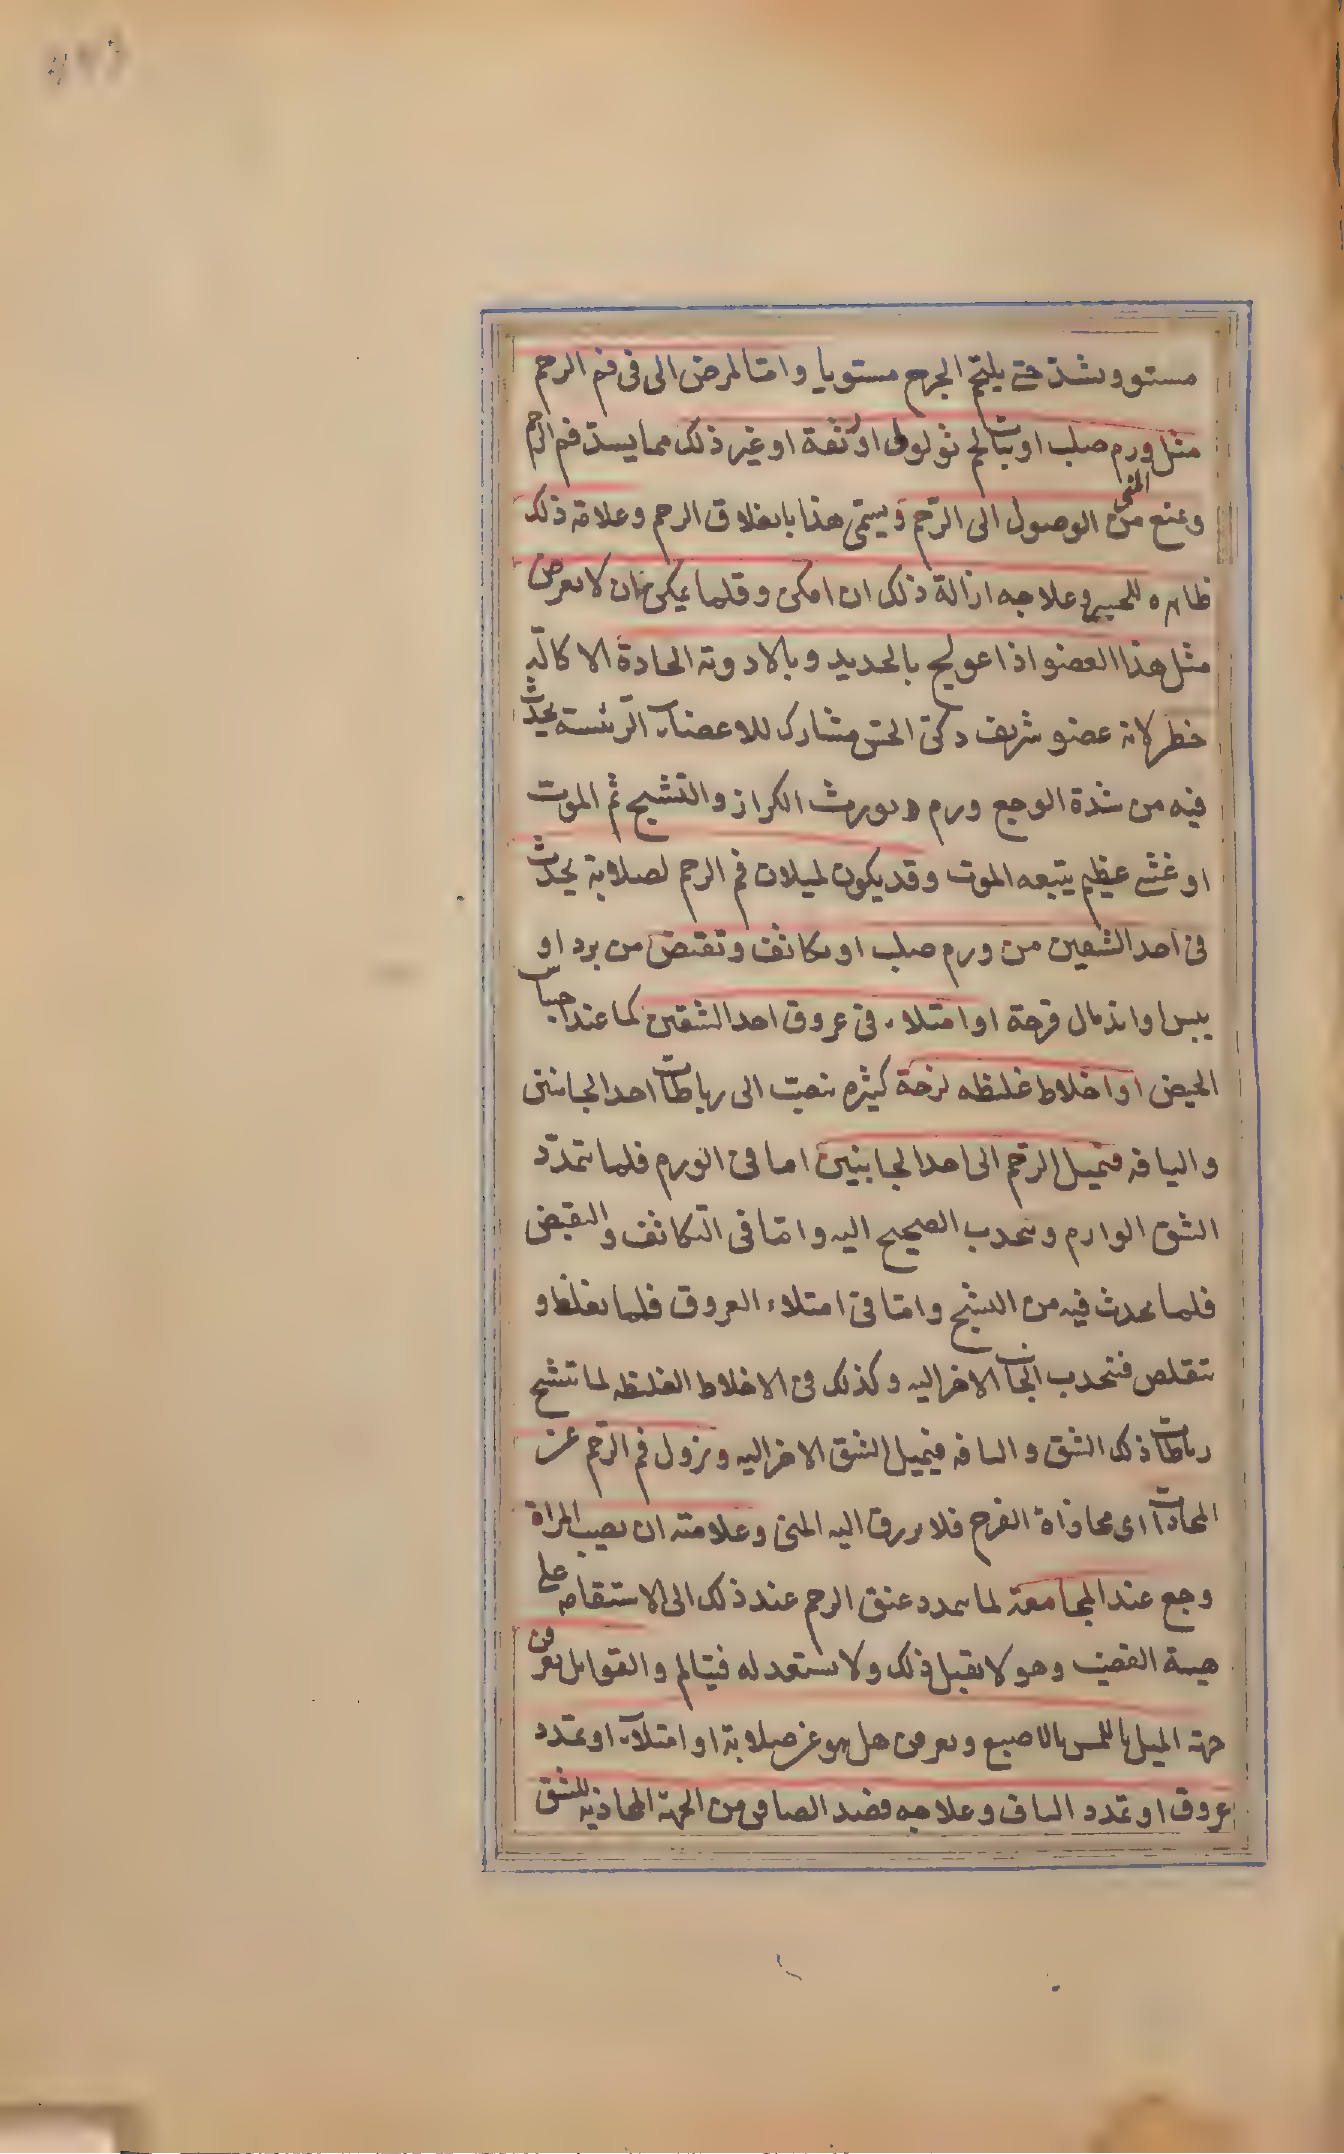 مستو و يشد حتى يلتحم الجرح مستويا و اما لمرض الى فى فم الرحم
مثل ورم صلب او نبات لحم ثؤلولى او نفة او غير ذلك مما يسد فم الرحم
و يمنع المنى من الوصول الى الرّحم و يسمّى هذا بانغلاق الرحم و علامة ذلك
ظاهره للحس و علاجه ازالة ذلك ان امكن و قلما يمكن فان لا يعرض
مثل هذا العضو اذا عولج بالحديد و بالادوية الحادة الاكّالة
خطر لانه عضو شريف ذكىّ الحسّ مشارك للاعضاء الرّئيسة يحدث
فيه من شدة الوجع ورم و يورث الكزاز و التشنج ثم الموت
او غشى عظيم يتبعه الموت و قد يكون لميلان فم الرحم لصلابة يحدث
فى احد الشقين من ورم صلب او تكاثف و تقبض من برد او
يبس او اندمال قرحة او امتلاء فى عروق احد الشقين كما عند احتباس
الحيض او اخلاط غليظه لزجة كثيره تنصبّ الى رباطات احد الجانبين
و اليافه فيميل الرّحم الى احد الجانبين اما فى الورم فلما يتمدّد
الشق الوارم و ينجذب الصحيح اليه و امّا فى التّكاثف و التقبض
فلما يحدث فيه من التشنج و امّا فى امتلاء العروق فلما يغلظ و
تتقلص فينجذب الجانب الاخر اليه و كذلك فى الاخلاط الغليظه لما يتشنج
رباطات ذلك الشق و اليافه فيميل الشق الاخر اليه و يزول فم الرّحم عن
المحاذات اى محاذاة الفرج فلا يزرق اليه المنى و علامته ان يصيب المراة
وجع عند المجامعة لما يتمدد عنق الرحم عند ذلك الى الاستقامه على
هيئة القضيب و هو لا يقبل ذلك و لا يستعد له فيتالم و القوابل يعرفن
جهة الميل باللمس بالاصبع و يعرفن هل هو عن صلابة او امتلاء او تمدد
عروق او تمدد الياف و علاجه فصد الصافن من الجهة المحاذيه للشق